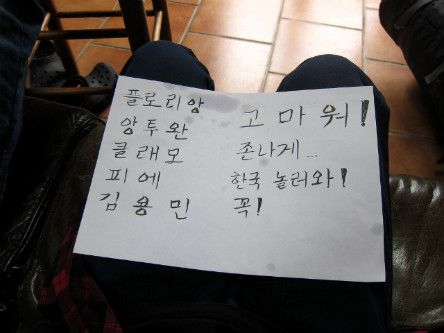 플로리앙 고마워!
앙투완 존나게...
클래모 한국 놀러와!
피에 꼭!
김용민